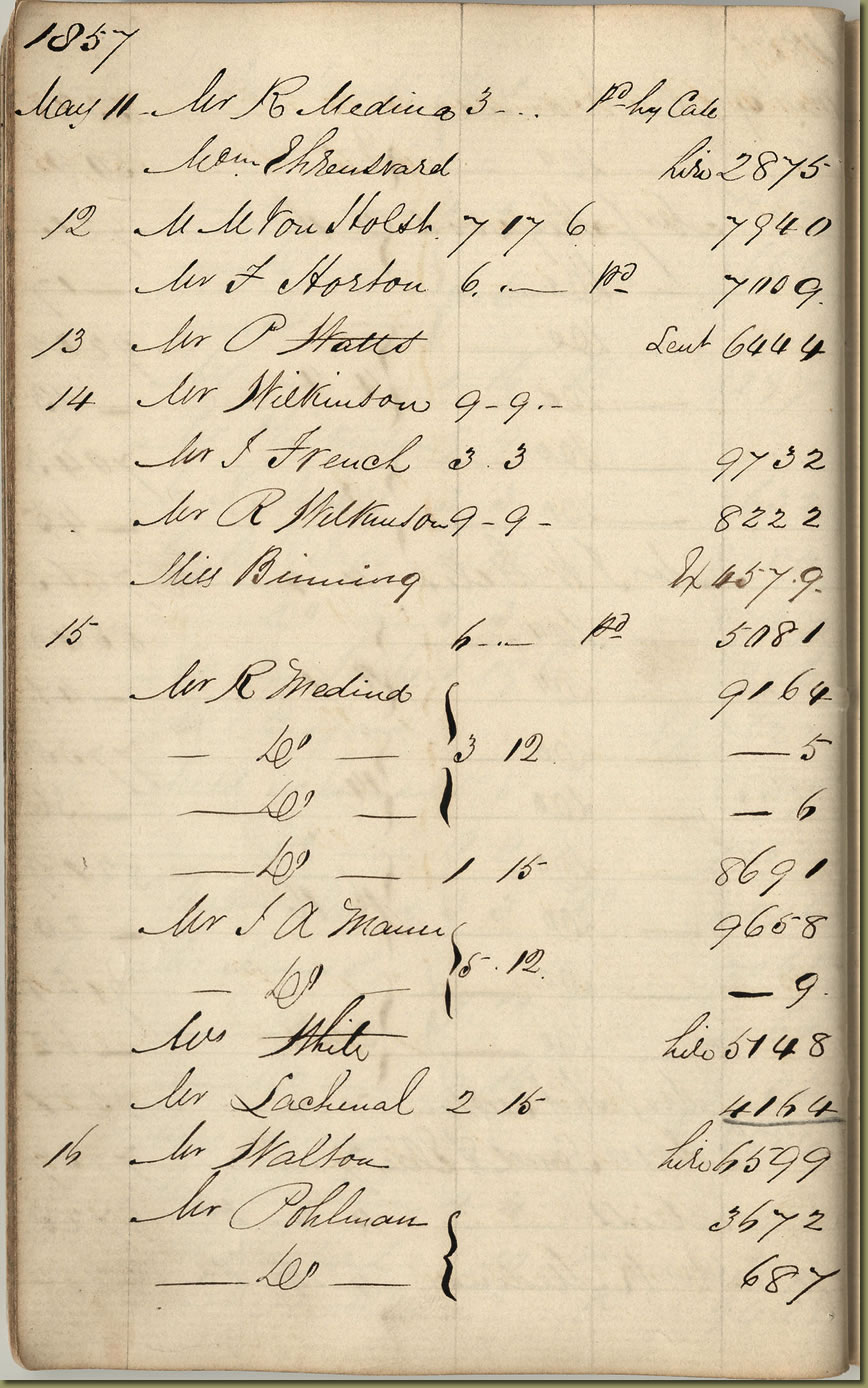 1857
May 11 Mr R Medina 3 - .. Pd by Cate
Mdm Ehrensvard hire 2875
12 M M Von Holst. 7 17 6 7940
Mr F Horton 6. .— Pd 7009.
13 Mr P Watts Lent 6444
14 Mr Wilkinson 9 - 9 . -
Mr J French 3 . 3 9732
Mr R Wilkinson 9 - 9 - 8222
Miss Binning Ex 4579.
15 6 - .. Pd 5081
Mr R Medina 9164
— Do — 3 12 — 5
— Do — — 6
— Do — 1 15 8691
Mr J A Mann 9658
— Do 5 . 12. — 9.
Mrs White hire 5148
Mr Lachenal 2 15 4164
16 Mr Walton hire 6599
Mr Pohlman 3672
— Do — 687